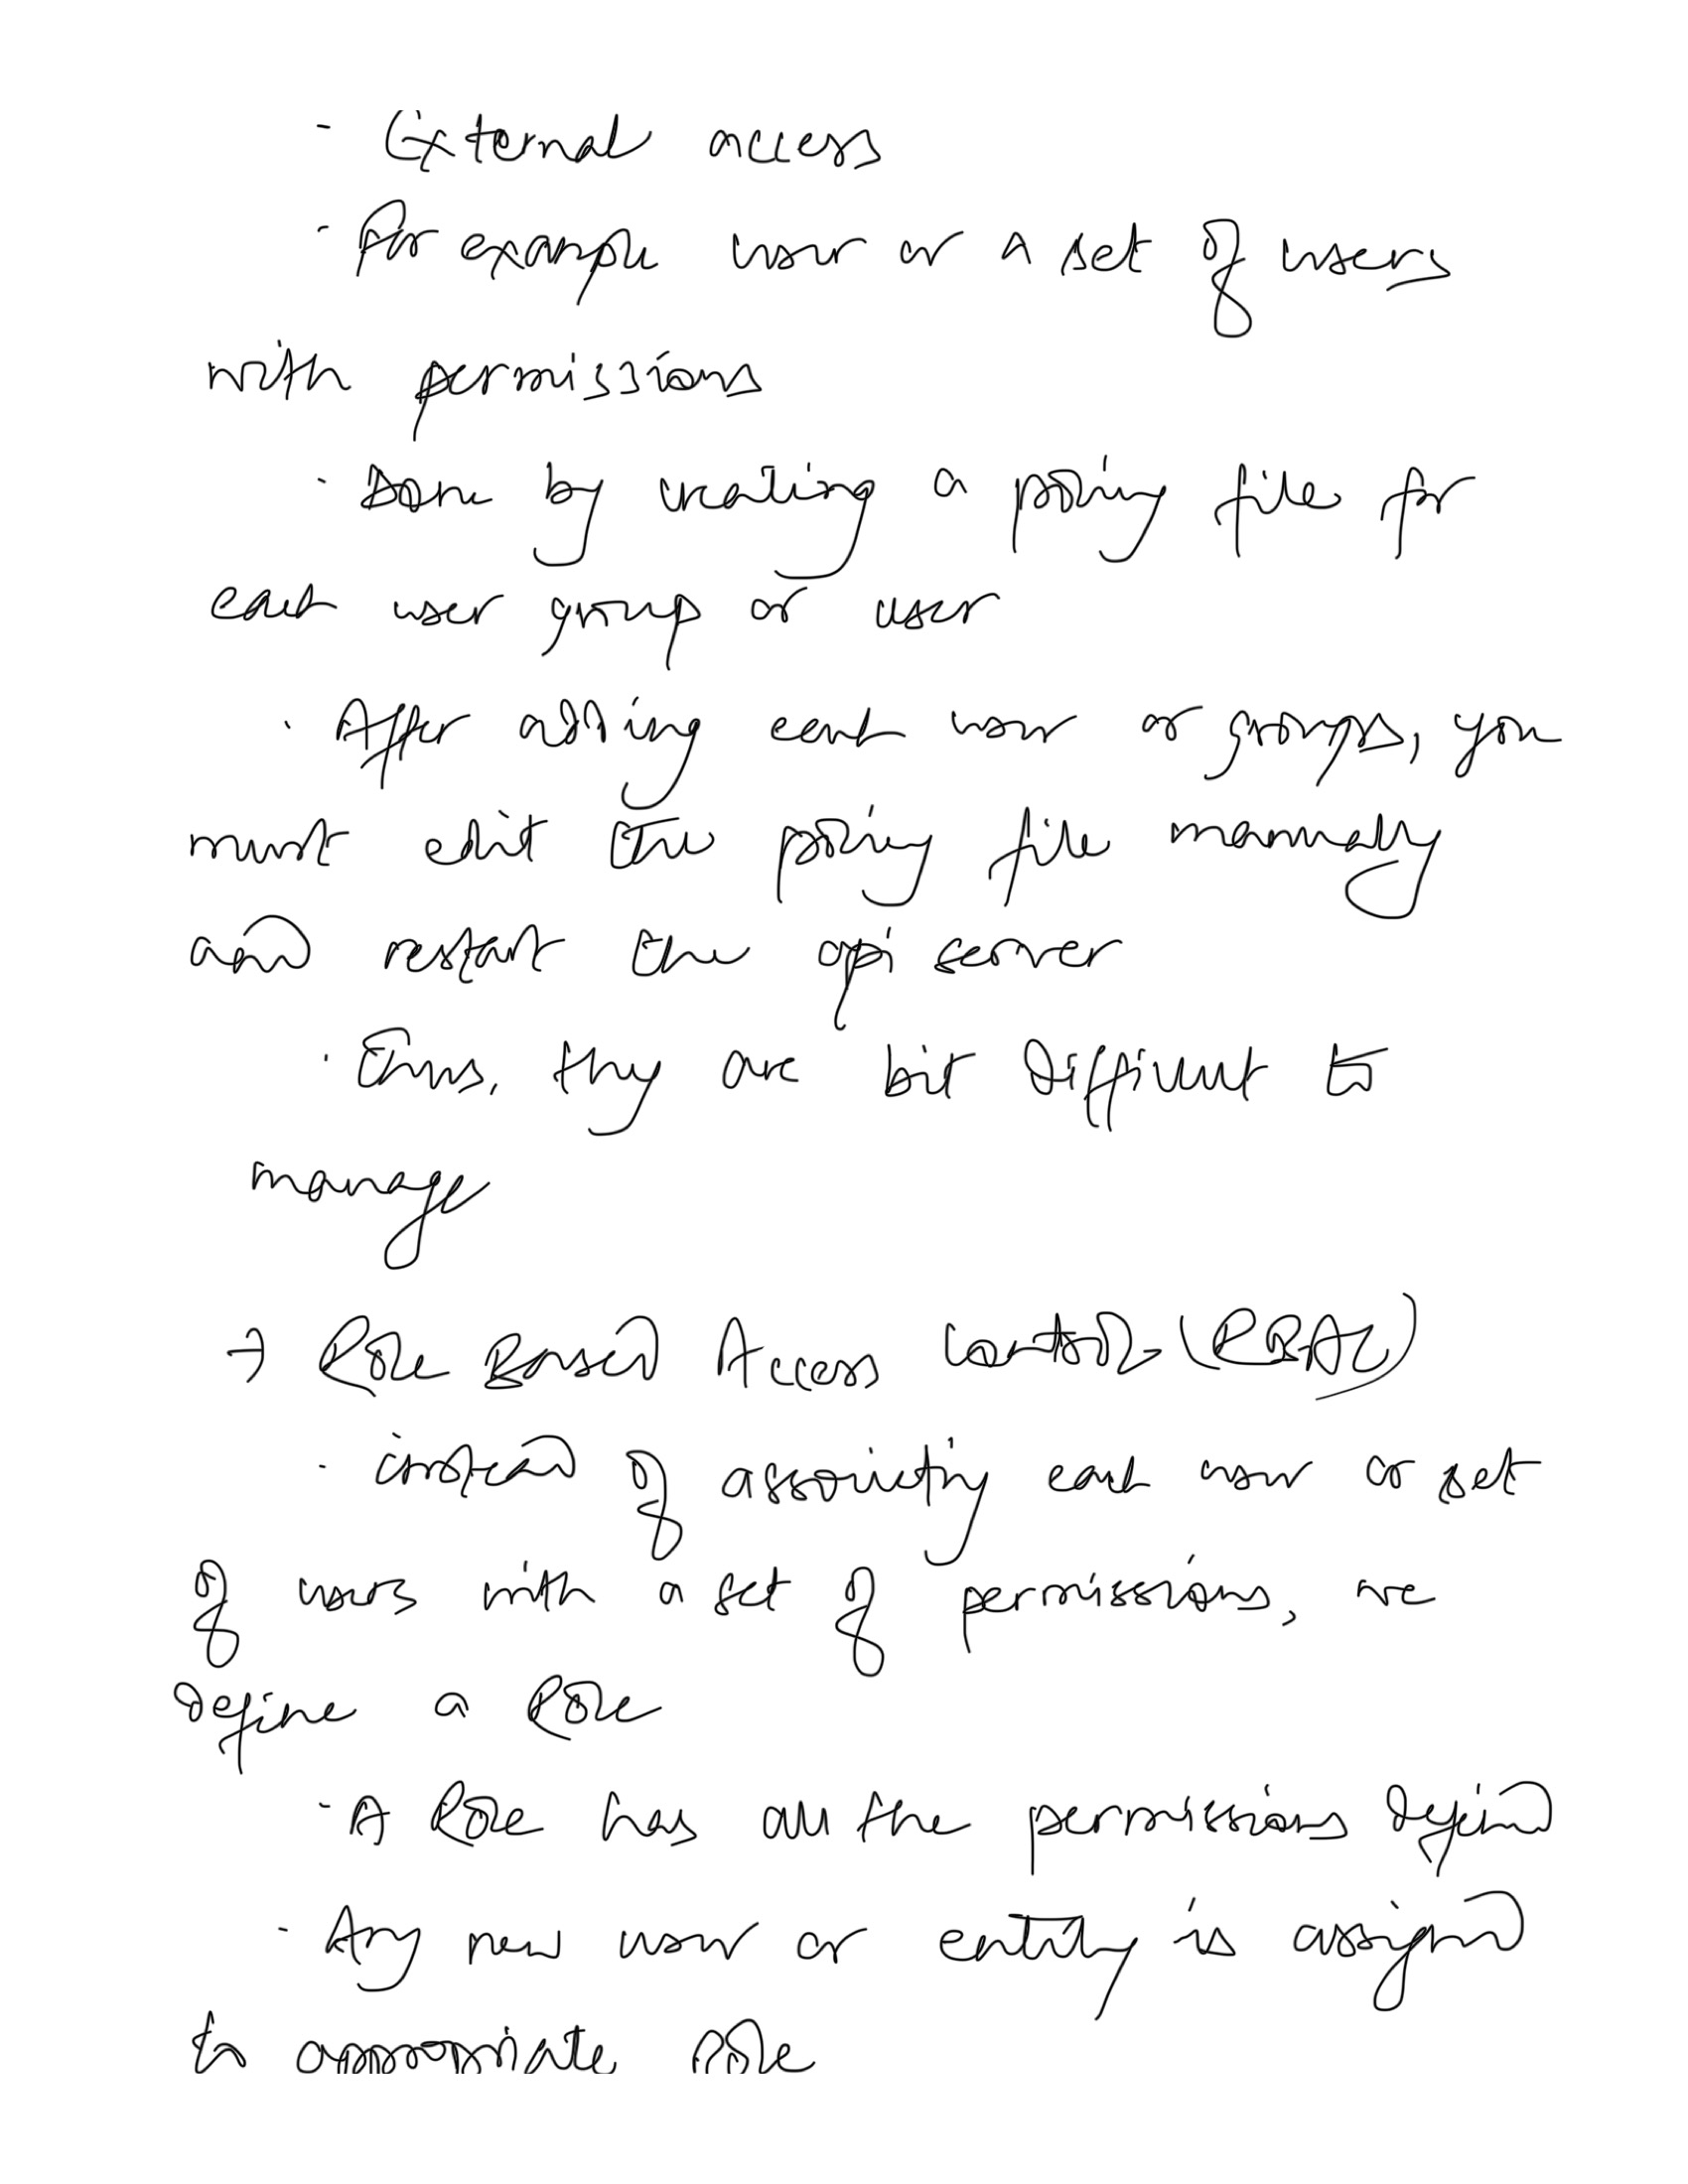 - External access
- For example user or a set of users
with permissions
- Done by creating a policy file for
each user group or user
- After adding each user or groups, you
must edit the policy file manually
and restart the api server
- Thus, they are bit difficult to
manage
→ Role Based Access Control - (RBAC)
- instead of associating each user or set
of users with a set of permissions, we
define a Role
- A Role has all the permissions defined
- Any new user or entity is assigned
to appropriate Role